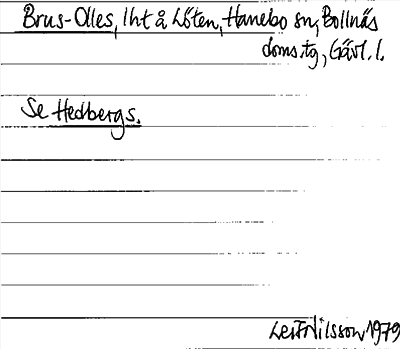 Brus-Olles, lht å Löten, Hanebo sn, Bollnäs
doms.tg, Gävl. l.
Se Hedbergs.
Leif Nilsson 1979